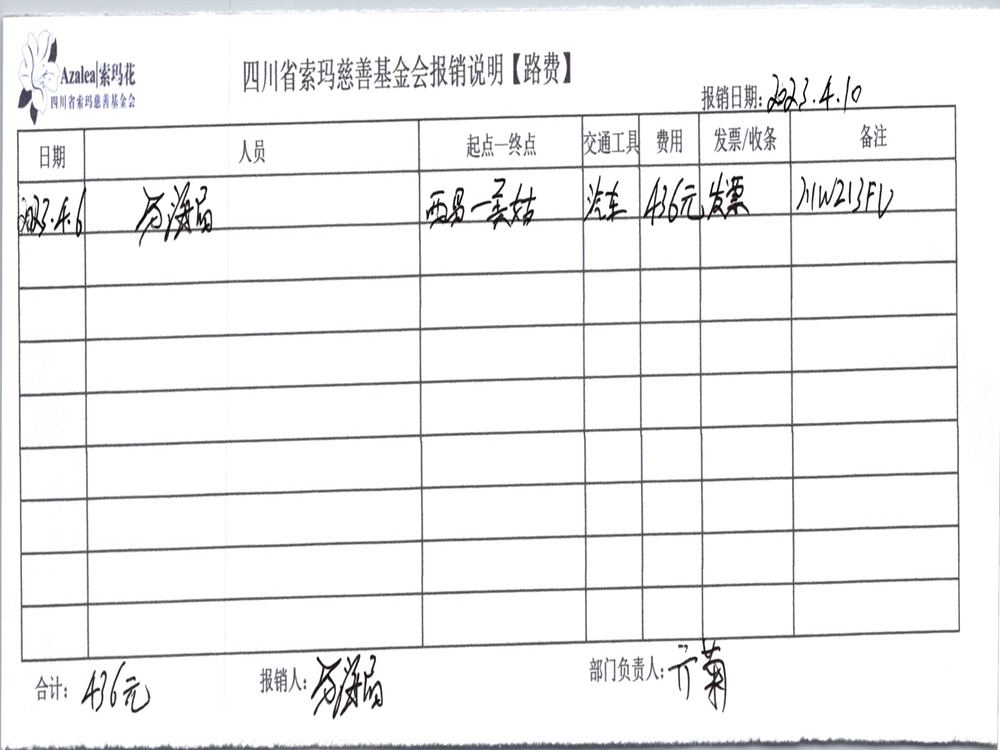 Azalea|索玛花
四川省索玛慈善基金会
四川省索玛慈善基金会报销说明【路费】
报销日期：2023.4.10
日期 人员 起点—终点 交通工具 费用 发票/收条 备注
2023.4.6 西昌—美姑 汽车 436元 发票 川W213FU
合计：436元 报销人： 部门负责人：